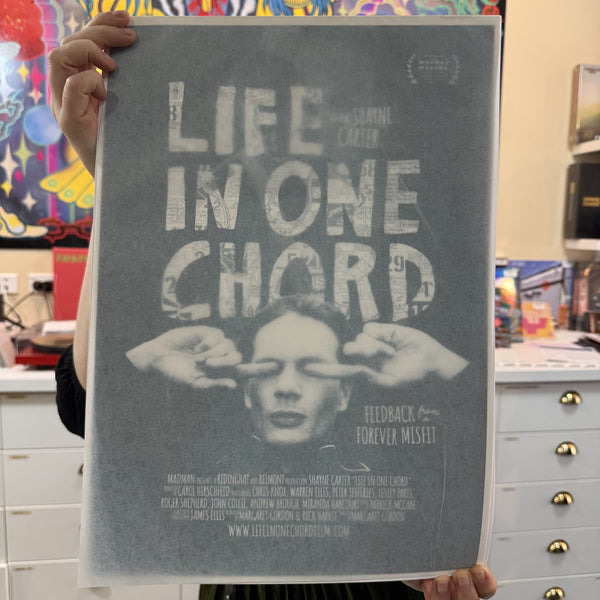 LIFE
SHAYNE
CARTER
IN ONE
CHORD
FEEDBACK from
a
FOREVER MISFIT
MADMAN A RIDENCHAT BELMONT PRODUCTION SHAYNE CARTER "LIFE IN ONE CHORD"
CAROL HERSCHFELD CHRIS KNOX, WARREN ELLIS, PETER JEFFERIES, LESLEY PARIS,
ROGER SHEPHERD, JOHN COLLIE, ANDREW BROUGH, MIRANDA HARCOURT PATRICK MCCANE
JAMES ELLIS MARGARET GORDON & RICK HARVIE MARGARET GORDON
WWW.LIFEINONECHORDFILM.COM